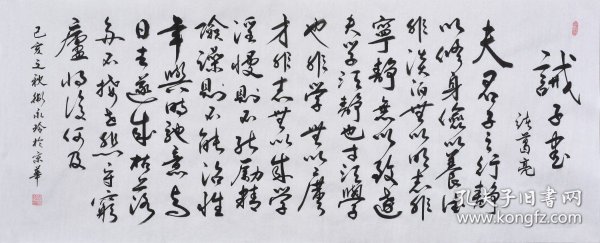 誡子書
諸葛亮
夫君子之行靜
以修身儉以養德
非淡泊無以明志非
寧靜無以致遠
夫學須靜也才須學
也非學無以廣
才非志無以成學
淫慢則不能勵精
險躁則不能治性
年與時馳意與
日去遂成枯落
多不接世悲守窮
廬將復何及
己亥之秋永玲於京華
孔夫子旧书网
www.kongfz.com